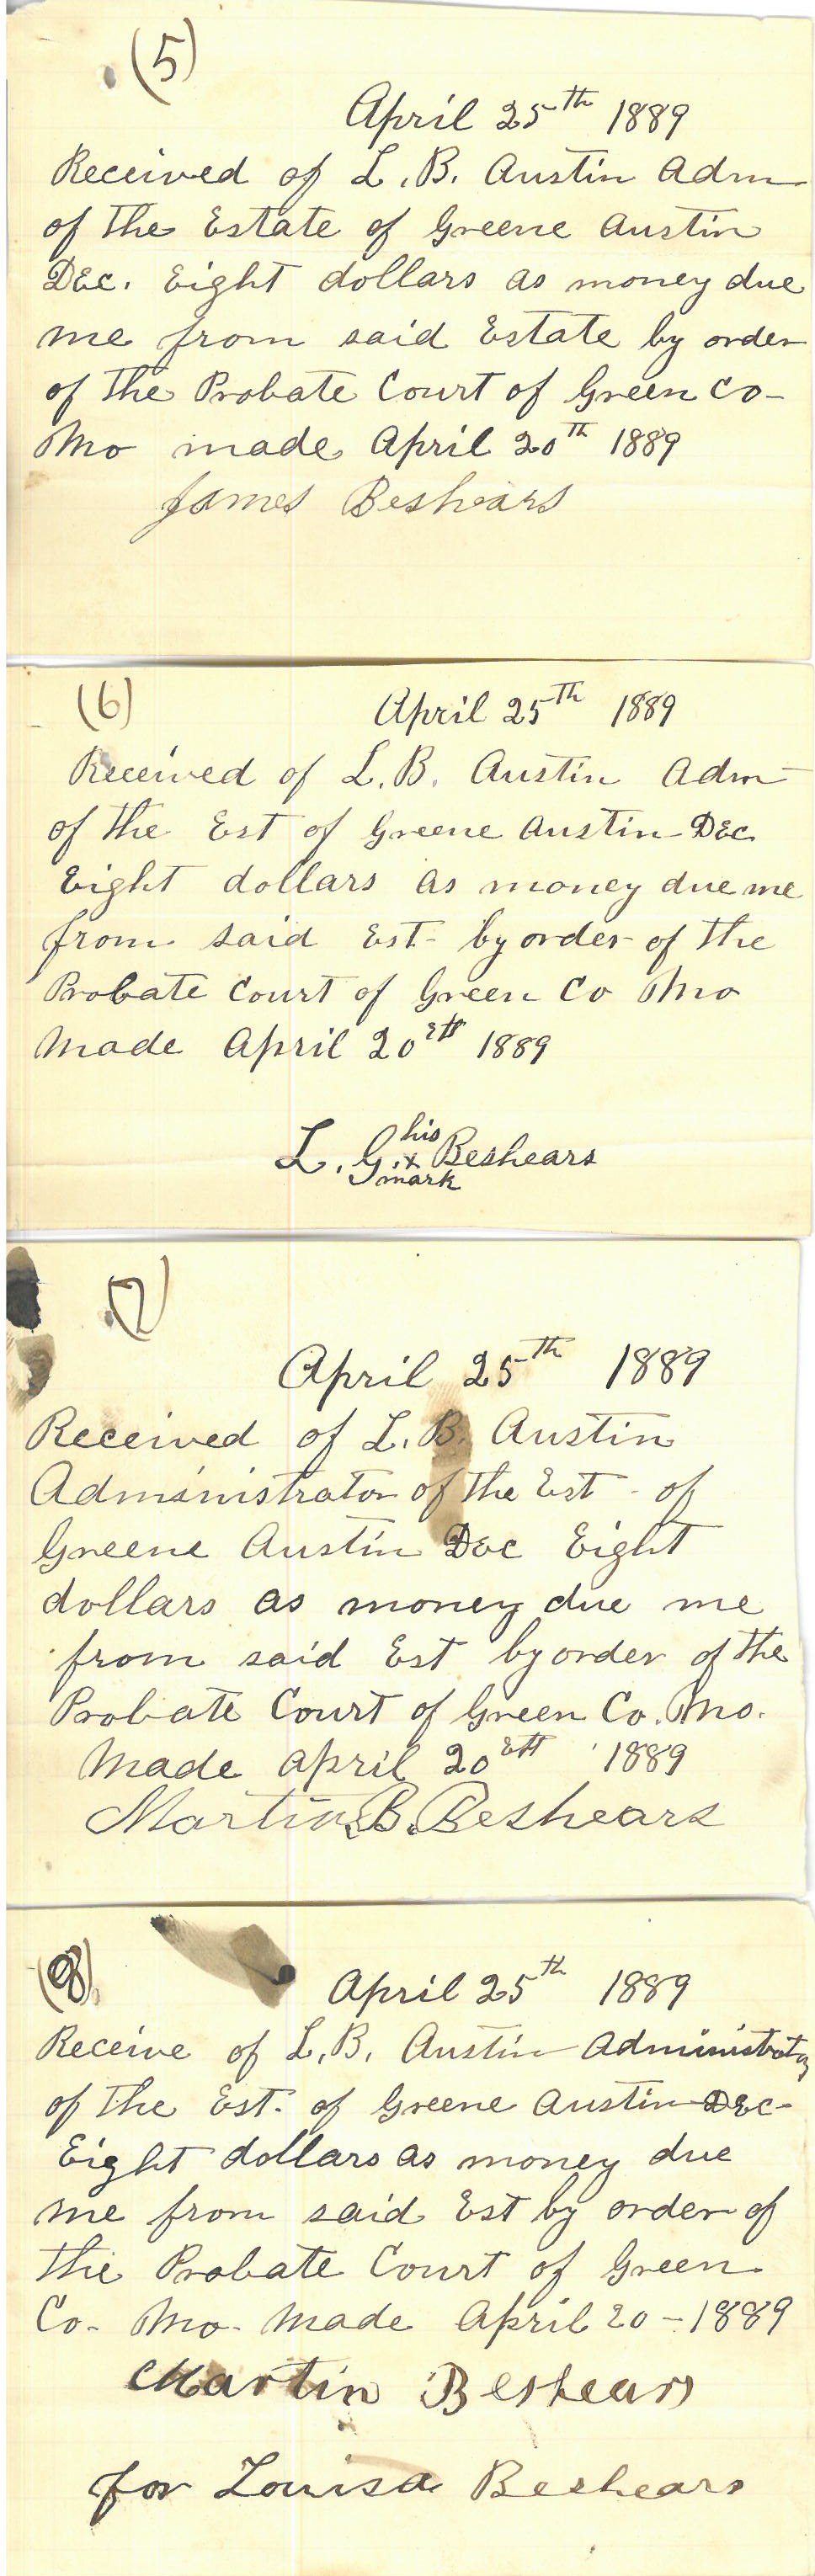 (5)
April 25th 1889
Received of L. B. Austin Adm
of the Estate of Greene Austin
Dec. Eight dollars as money due
me from said Estate by order
of the Probate Court of Green Co-
Mo made April 20th 1889
James Beshears
(6)
April 25th 1889
Received of L. B. Austin Adm
of the Est of Greene Austin Dec
Eight dollars as money due me
from said Est- by order of the
Probate Court of Green Co Mo
Made April 20eth 1889
his
L. G. x Beshears
mark
(7)
April 25th 1889
Received of L. B. Austin
Administrator of the Est - of
Greene Austin Dec Eight
dollars as money due me
from said Est by order of the
Probate Court of Green Co. Mo.
Made April 20eth 1889
Martin B. Beshears
(8)
April 25th 1889
Receive of L. B. Austin Administrator
of the Est. of Greene Austin Dec-
Eight dollars as money due
me from said Est by order of
the Probate Court of Green
Co- Mo- Made April 20-1889
Martin Beshears
for Louisa Beshears